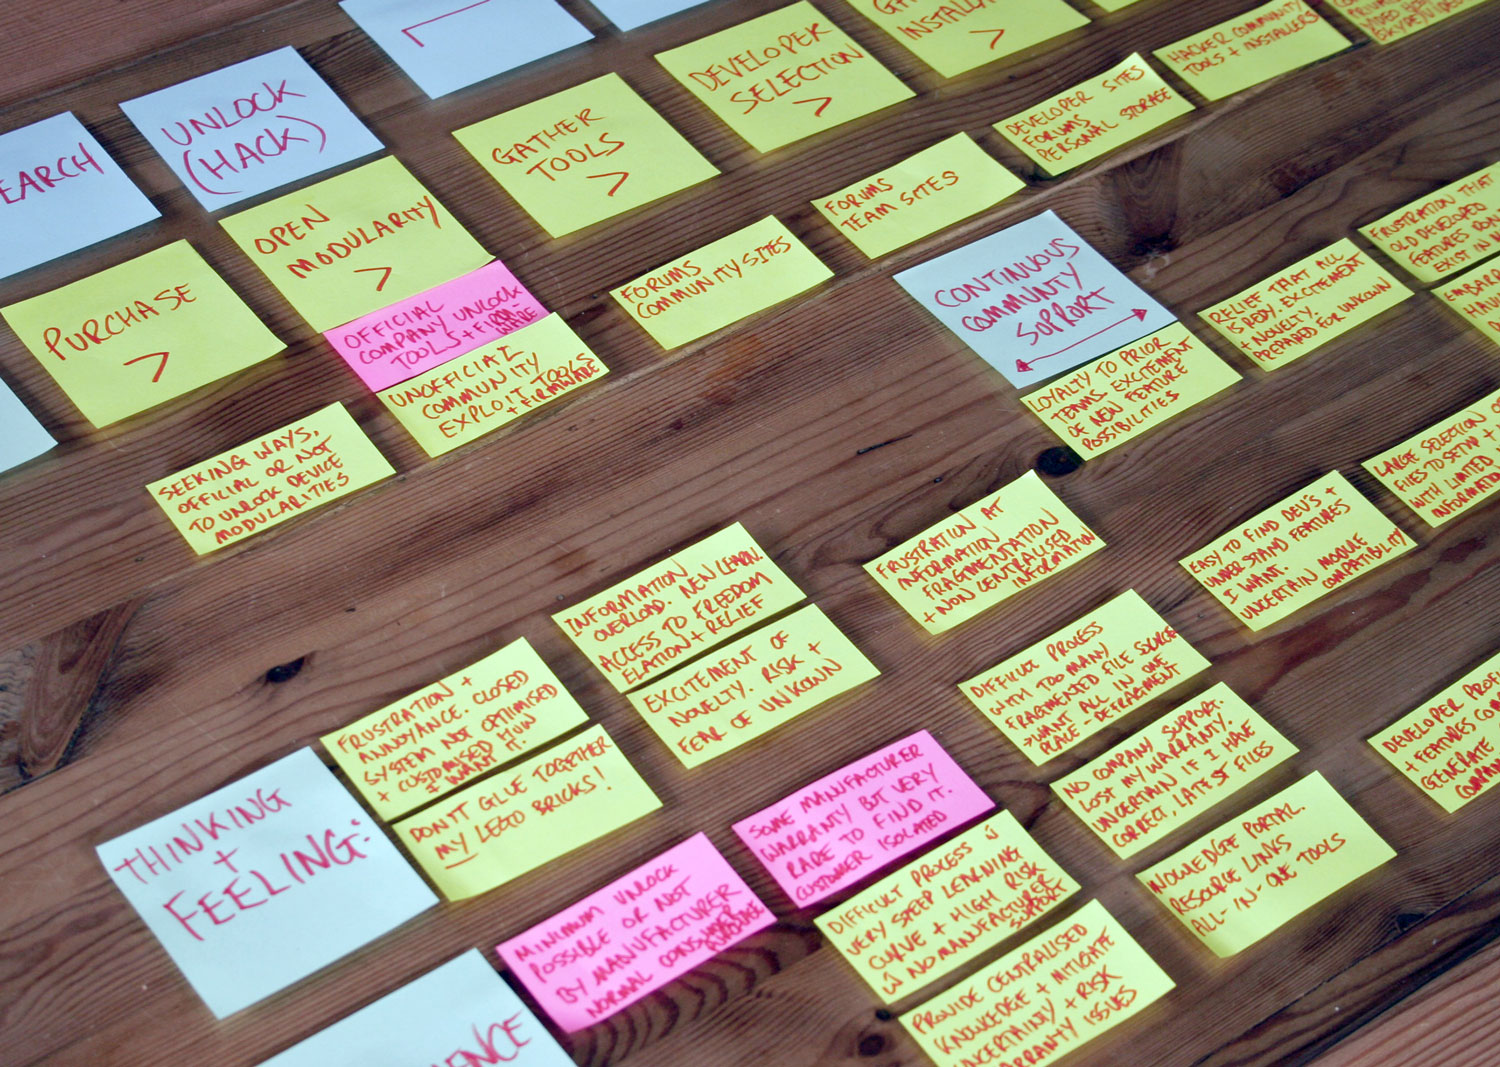 EARCH
UNLOCK
(HACK)
PURCHASE
>
OPEN
MODULARITY
>
GATHER
TOOLS
>
DEVELOPER
SELECTION
>
>
OFFICIAL
COMPANY UNLOCK
TOOLS + FIRMWARE
UNOFFICIAL
COMMUNITY
EXPLOIT TOOLS
+ FIRMWARE
FORUMS
COMMUNITY SITES
FORUMS
TEAM SITES
DEVELOPER SITES
FORUMS
PERSONAL STORAGE
HACKER COMMUNITY
TOOLS + INSTALLERS
SEEKING WAYS,
OFFICIAL OR NOT
TO UNLOCK DEVICE
MODULARITIES
CONTINUOUS
COMMUNITY
SUPPORT
LOYALTY TO PRIOR
TEAMS. EXCITEMENT
OF NEW FEATURE
POSSIBILITIES
RELIEF THAT ALL
IS REDY. EXCITEMENT
+ NOVELTY.
PREPARED FOR UNKOWN
FRUSTRATION THAT
OLD DEVELOPED
FEATURES
EXIST IN
THINKING
+
FEELING:
FRUSTRATION +
ANNOYANCE. CLOSED
SYSTEM NOT OPTIMISED
+ CUSTOMISED HOW
I WANT IT.
DON'T GLUE TOGETHER
MY LEGO BRICKS!
INFORMATION
OVERLOAD. NEW LEARN.
ACCESS TO FREEDOM
ELATION + RELIEF
EXCITEMENT OF
NOVELTY. RISK +
FEAR OF UNKOWN
FRUSTRATION AT
INFORMATION
FRAGMENTATION
+ NON CENTRALISED
INFORMATION
EASY TO FIND DEV'S +
UNDERSTAND FEATURES
I WANT.
UNCERTAIN MODULE
COMPATIBILITY
LARGE SELECTION OF
FILES TO SETUP +
WITH LIMITED
INFORMATION
MINIMUM UNLOCK
POSSIBLE OR NOT
BY MANUFACTURER
NORMAL CONSUMER
SOME MANUFACTURER
WARRANTY BUT VERY
RARE TO FIND IT.
CUSTOMER ISOLATED
DIFFICULT PROCESS
VERY STEEP LEARNING
CURVE + HIGH RISK
NO MANUFACTURER
SUPPORT
PROVIDE CENTRALISED
KNOWLEDGE + MITIGATE
UNCERTAINTY + RISK
WARRANTY ISSUES
DIFFICULT PROCESS
WITH TOO MANY
FRAGMENTED FILE SOURCES
>WANT ALL IN ONE
PLACE - DEFRAGMENT
NO COMPANY SUPPORT.
LOST MY WARRANTY.
UNCERTAIN IF I HAVE
CORRECT, LATEST FILES
NOWLEDGE PORTAL.
RESOURCE LINKS
ALL-IN-ONE TOOLS
DEVELOPER
+ FEATURES
GENERATE
ENCE